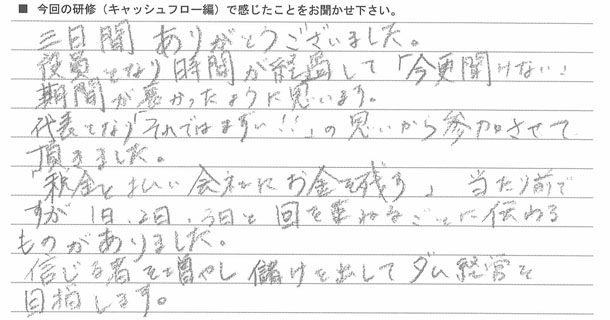 ■ 今回の研修（キャッシュフロー編）で感じたことをお聞かせ下さい。
三日間 ありがとうございました。
役員となり時間が経過して「今更聞けない！
期間が長かったように思います。
代表となり「それではまずい！！」の思いから参加させて
頂きました。
「税金を払い 会社にお金を残す」 当たり前で
すが 1日、2日、3日と 回を重ねるごとに伝わる
ものがありました。
信じる者を増やし 儲けを出して ダム経営を
目指します。